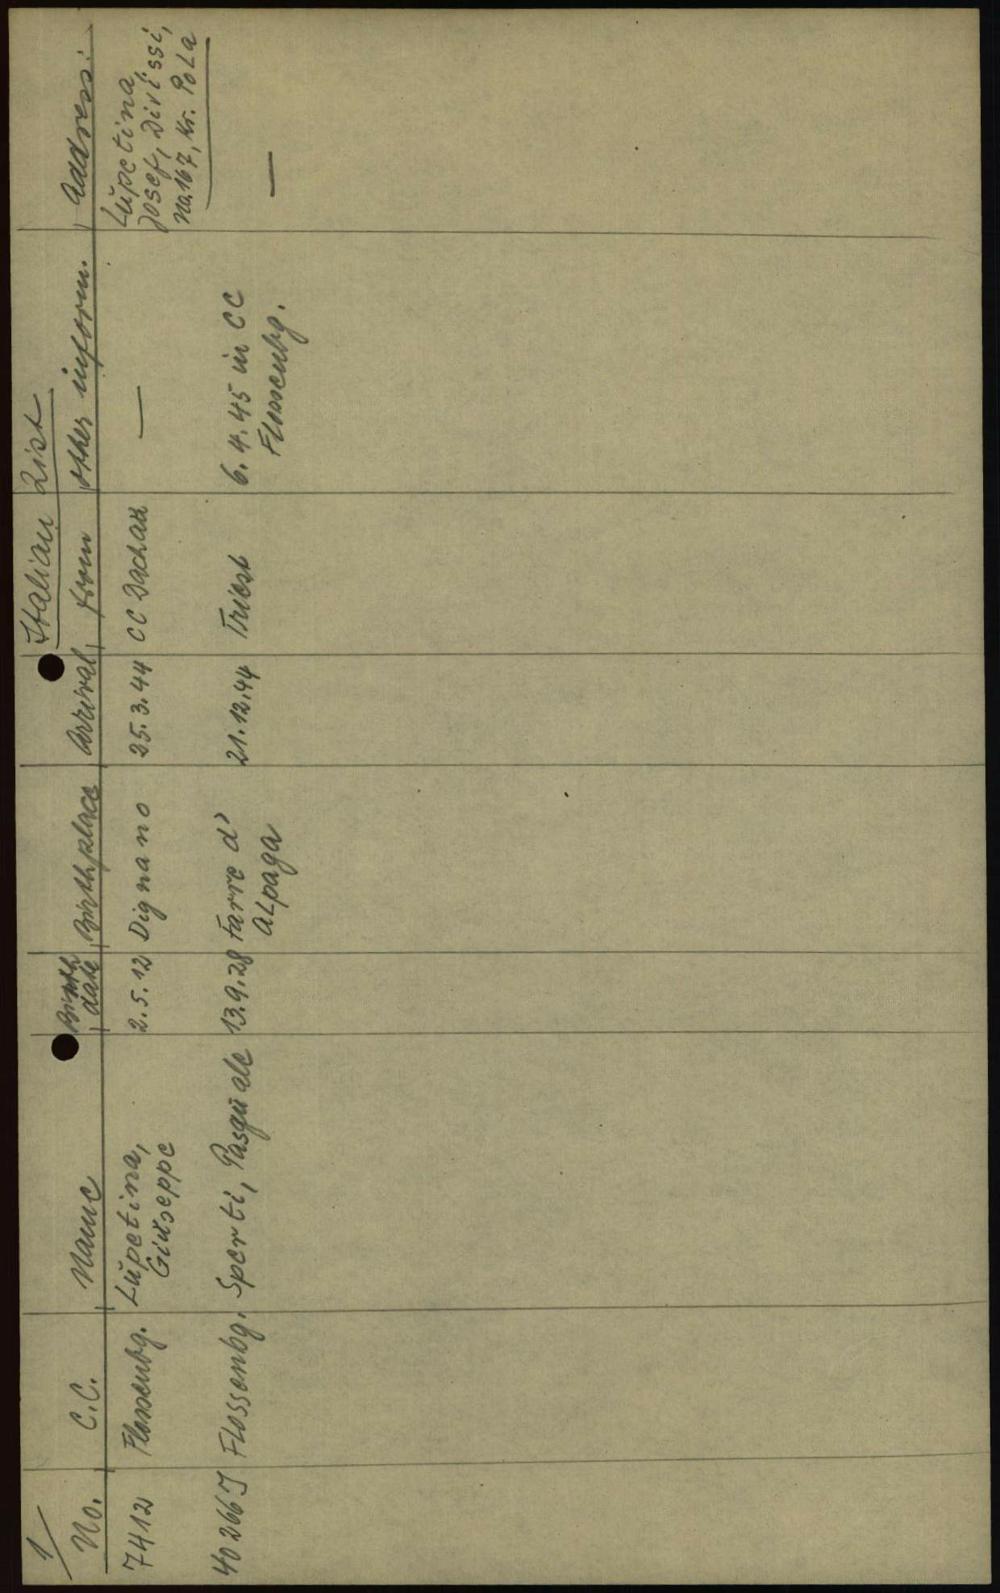 1/
Italian List
No. C.C. Name Birth date Birthplace Arrival from other inform. Address:
7412 Flossenbg. Lŭpetina, Giŭseppe 2.5.12 Dignano 25.3.44 CC Dachaŭ — Lŭpetina, Josef, Divissi, No.167, Kr. Pola
40266 I Flossenbg. Sperti, Pasqŭale 13.9.28 Farre d' Alpaga 21.12.44 Triest 6.4.45 in CC Flossenbg. —